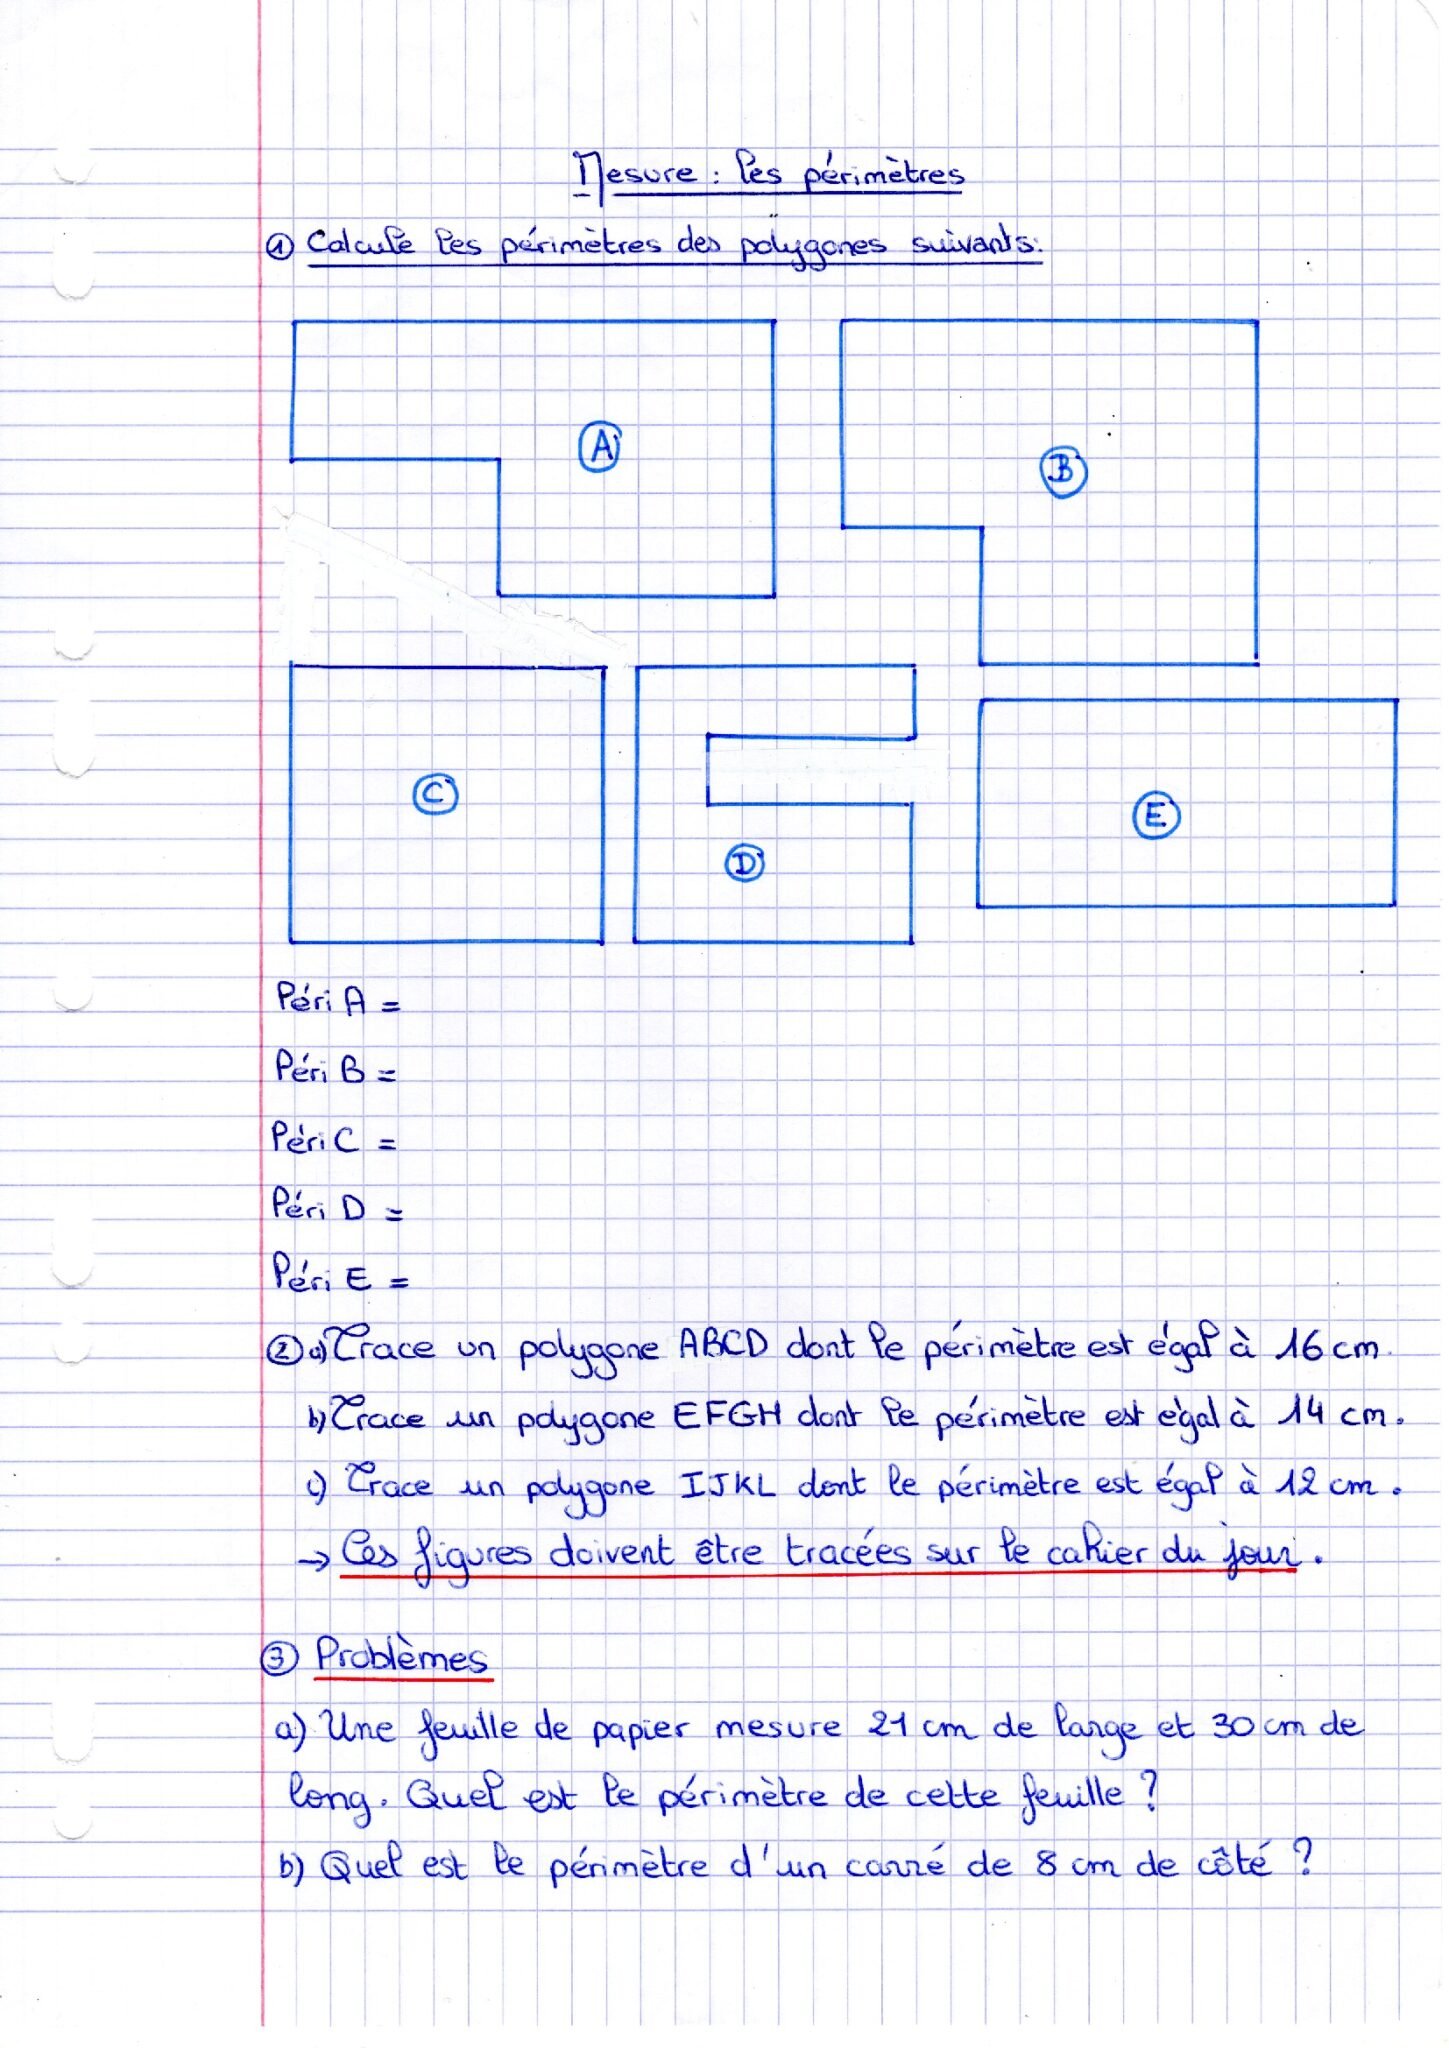 Mesure : les périmètres
① Calcule les périmètres des polygones suivants.
A
B
C
D
E
Péri A =
Péri B =
Péri C =
Péri D =
Péri E =
② a) Trace un polygone ABCD dont le périmètre est égal à 16 cm.
b) Trace un polygone EFGH dont le périmètre est égal à 14 cm.
c) Trace un polygone IJKL dont le périmètre est égal à 12 cm.
→ Ces figures doivent être tracées sur le cahier du jour.
③ Problèmes
a) Une feuille de papier mesure 21 cm de large et 30 cm de
long. Quel est le périmètre de cette feuille ?
b) Quel est le périmètre d'un carré de 8 cm de côté ?